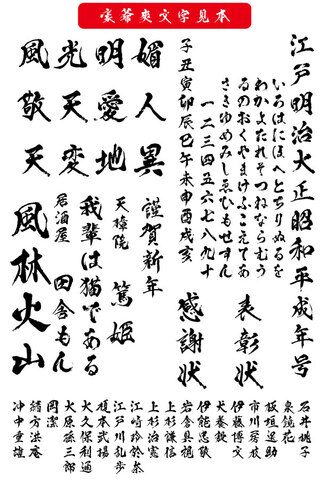 豪爺爽文字見本
江戸明治大正昭和平成年号
いろはにほへとちりぬるを
わかよたれそつねならむう
ゐのおくやまけふこえてあ
さきゆめみしゑひもせすん
一二三四五六七八九十
子丑寅卯辰巳午未申酉戌亥
媚人異
明愛地
光天変
風敬天
表彰状
感謝状
謹賀新年
天璋院 篤姫
我輩は猫である
居酒屋 田舎もん
風林火山
石井桃子
泉鏡花
板垣退助
市川房枝
伊藤博文
犬養毅
伊能忠敬
岩倉具視
上杉謙信
上杉治憲
江崎玲於奈
江戸川乱歩
榎本武揚
大久保利通
大原孫三郎
岡潔
緒方洪庵
沖中重雄